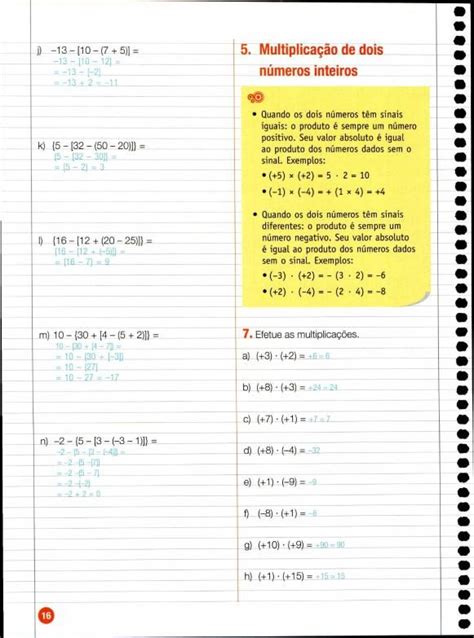 j) –13 – [10 – (7 + 5)] =
–13 – [10 – 12] =
= –13 – [–2]
= –13 + 2 = –11
k) {5 – [32 – (50 – 20)]} =
{5 – [32 – 30]} =
= {5 – 2} = 3
l) {16 – [12 + (20 – 25)]} =
{16 – [12 + (–5)]} =
= {16 – 7} = 9
m) 10 – {30 + [4 – (5 + 2)]} =
10 – {30 + [4 – 7]} =
= 10 – {30 + [–3]}
= 10 – {27}
= 10 – 27 = –17
n) –2 – {5 – [3 – (–3 – 1)]} =
–2 – {5 – [3 – (–4)]} =
= –2 –{5 –[7]}
= –2 –{5 – 7}
= –2 –{–2}
= –2 + 2 = 0
16
5. Multiplicação de dois
números inteiros
• Quando os dois números têm sinais
iguais: o produto é sempre um número
positivo. Seu valor absoluto é igual
ao produto dos números dados sem o
sinal. Exemplos:
• (+5) × (+2) = 5 · 2 = 10
• (–1) × (–4) = + (1 × 4) = +4
• Quando os dois números têm sinais
diferentes: o produto é sempre um
número negativo. Seu valor absoluto
é igual ao produto dos números dados
sem o sinal. Exemplos:
• (–3) · (+2) = – (3 · 2) = –6
• (+2) · (–4) = – (2 · 4) = –8
7. Efetue as multiplicações.
a) (+3) · (+2) = +6 = 6
b) (+8) · (+3) = +24 = 24
c) (+7) · (+1) = +7 = 7
d) (+8) · (–4) = –32
e) (+1) · (–9) = –9
f) (–8) · (+1) = –8
g) (+10) · (+9) = +90 = 90
h) (+1) · (+15) = +15 = 15